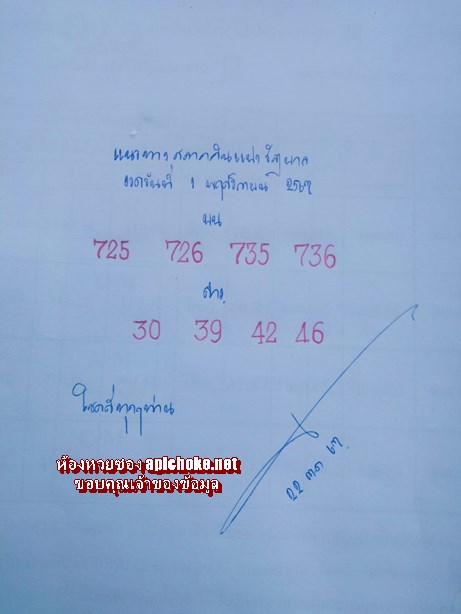 แนวทาง สลากกินแบ่ง รัฐบาล
งวดวันที่ 1 พฤศจิกายน 2567
บน
725 726 735 736
ล่าง
30 39 42 46
โชคดีทุกๆท่าน
22 ตค 67
ห้องหวยซอง apichoke.net
ขอบคุณเจ้าของข้อมูล